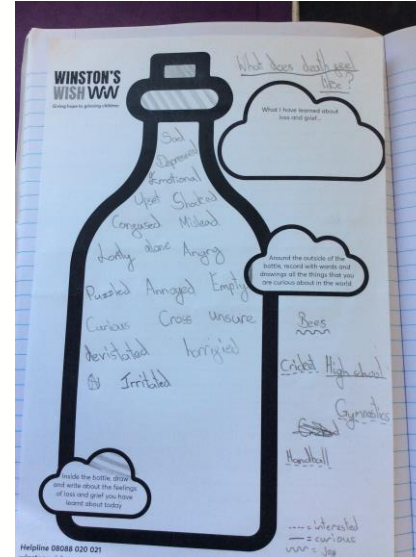 WINSTON'S
WISH
Giving hope to grieving children
What does death feel
like?
What I have learned about
loss and grief...
Sad
Depressed
Emotional
Upset Shocked
Confused Mislead
Lonly alone Angry
Puzzled Annoyed Empty
Curious Cross unsure
devistated horrified
Irritated
Around the outside of the
bottle, record with words and
drawings all the things that you
are curious about in the world
Bees
Cricket High school
Gymnastics
Handball
Inside the bottle, draw
and write about the feelings
of loss and grief you have
learnt about today
---- = interested
— = curious
= joy
Helpline 08088 020 021